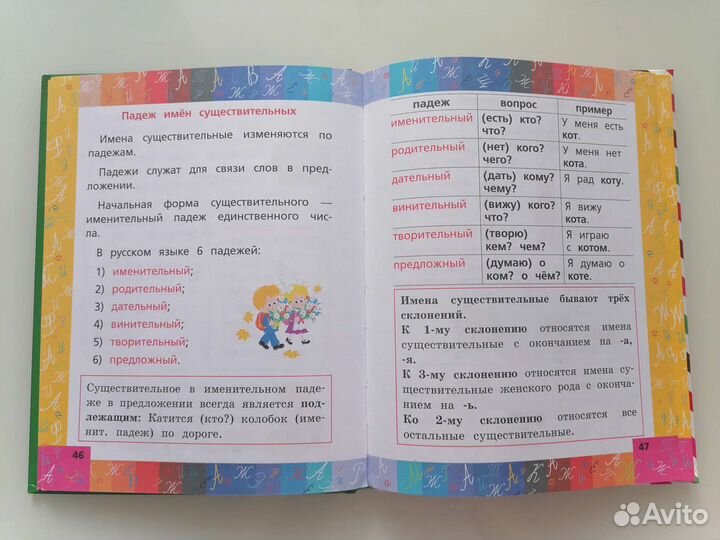 Падеж имён существительных
Имена существительные изменяются по
падежам.
Падежи служат для связи слов в пред-
ложении.
Начальная форма существительного —
именительный падеж единственного чис-
ла.
В русском языке 6 падежей:
1) именительный;
2) родительный;
3) дательный;
4) винительный;
5) творительный;
6) предложный.
Существительное в именительном паде-
же в предложении всегда является под-
лежащим: Катится (кто?) колобок (име-
нит. падеж) по дороге.
46
падеж вопрос пример
именительный (есть) кто? У меня есть
что? кот.
родительный (нет) кого? У меня нет
чего? кота.
дательный (дать) кому? Я рад коту.
чему?
винительный (вижу) кого? Я вижу
что? кота.
творительный (творю) Я играю
кем? чем? с котом.
предложный (думаю) о Я думаю о
ком? о чём? коте.
Имена существительные бывают трёх
склонений.
К 1-му склонению относятся имена
существительные с окончанием на -а,
-я.
К 3-му склонению относятся имена су-
ществительные женского рода с оконча-
нием на -ь.
Ко 2-му склонению относятся все
остальные существительные.
47
Avito